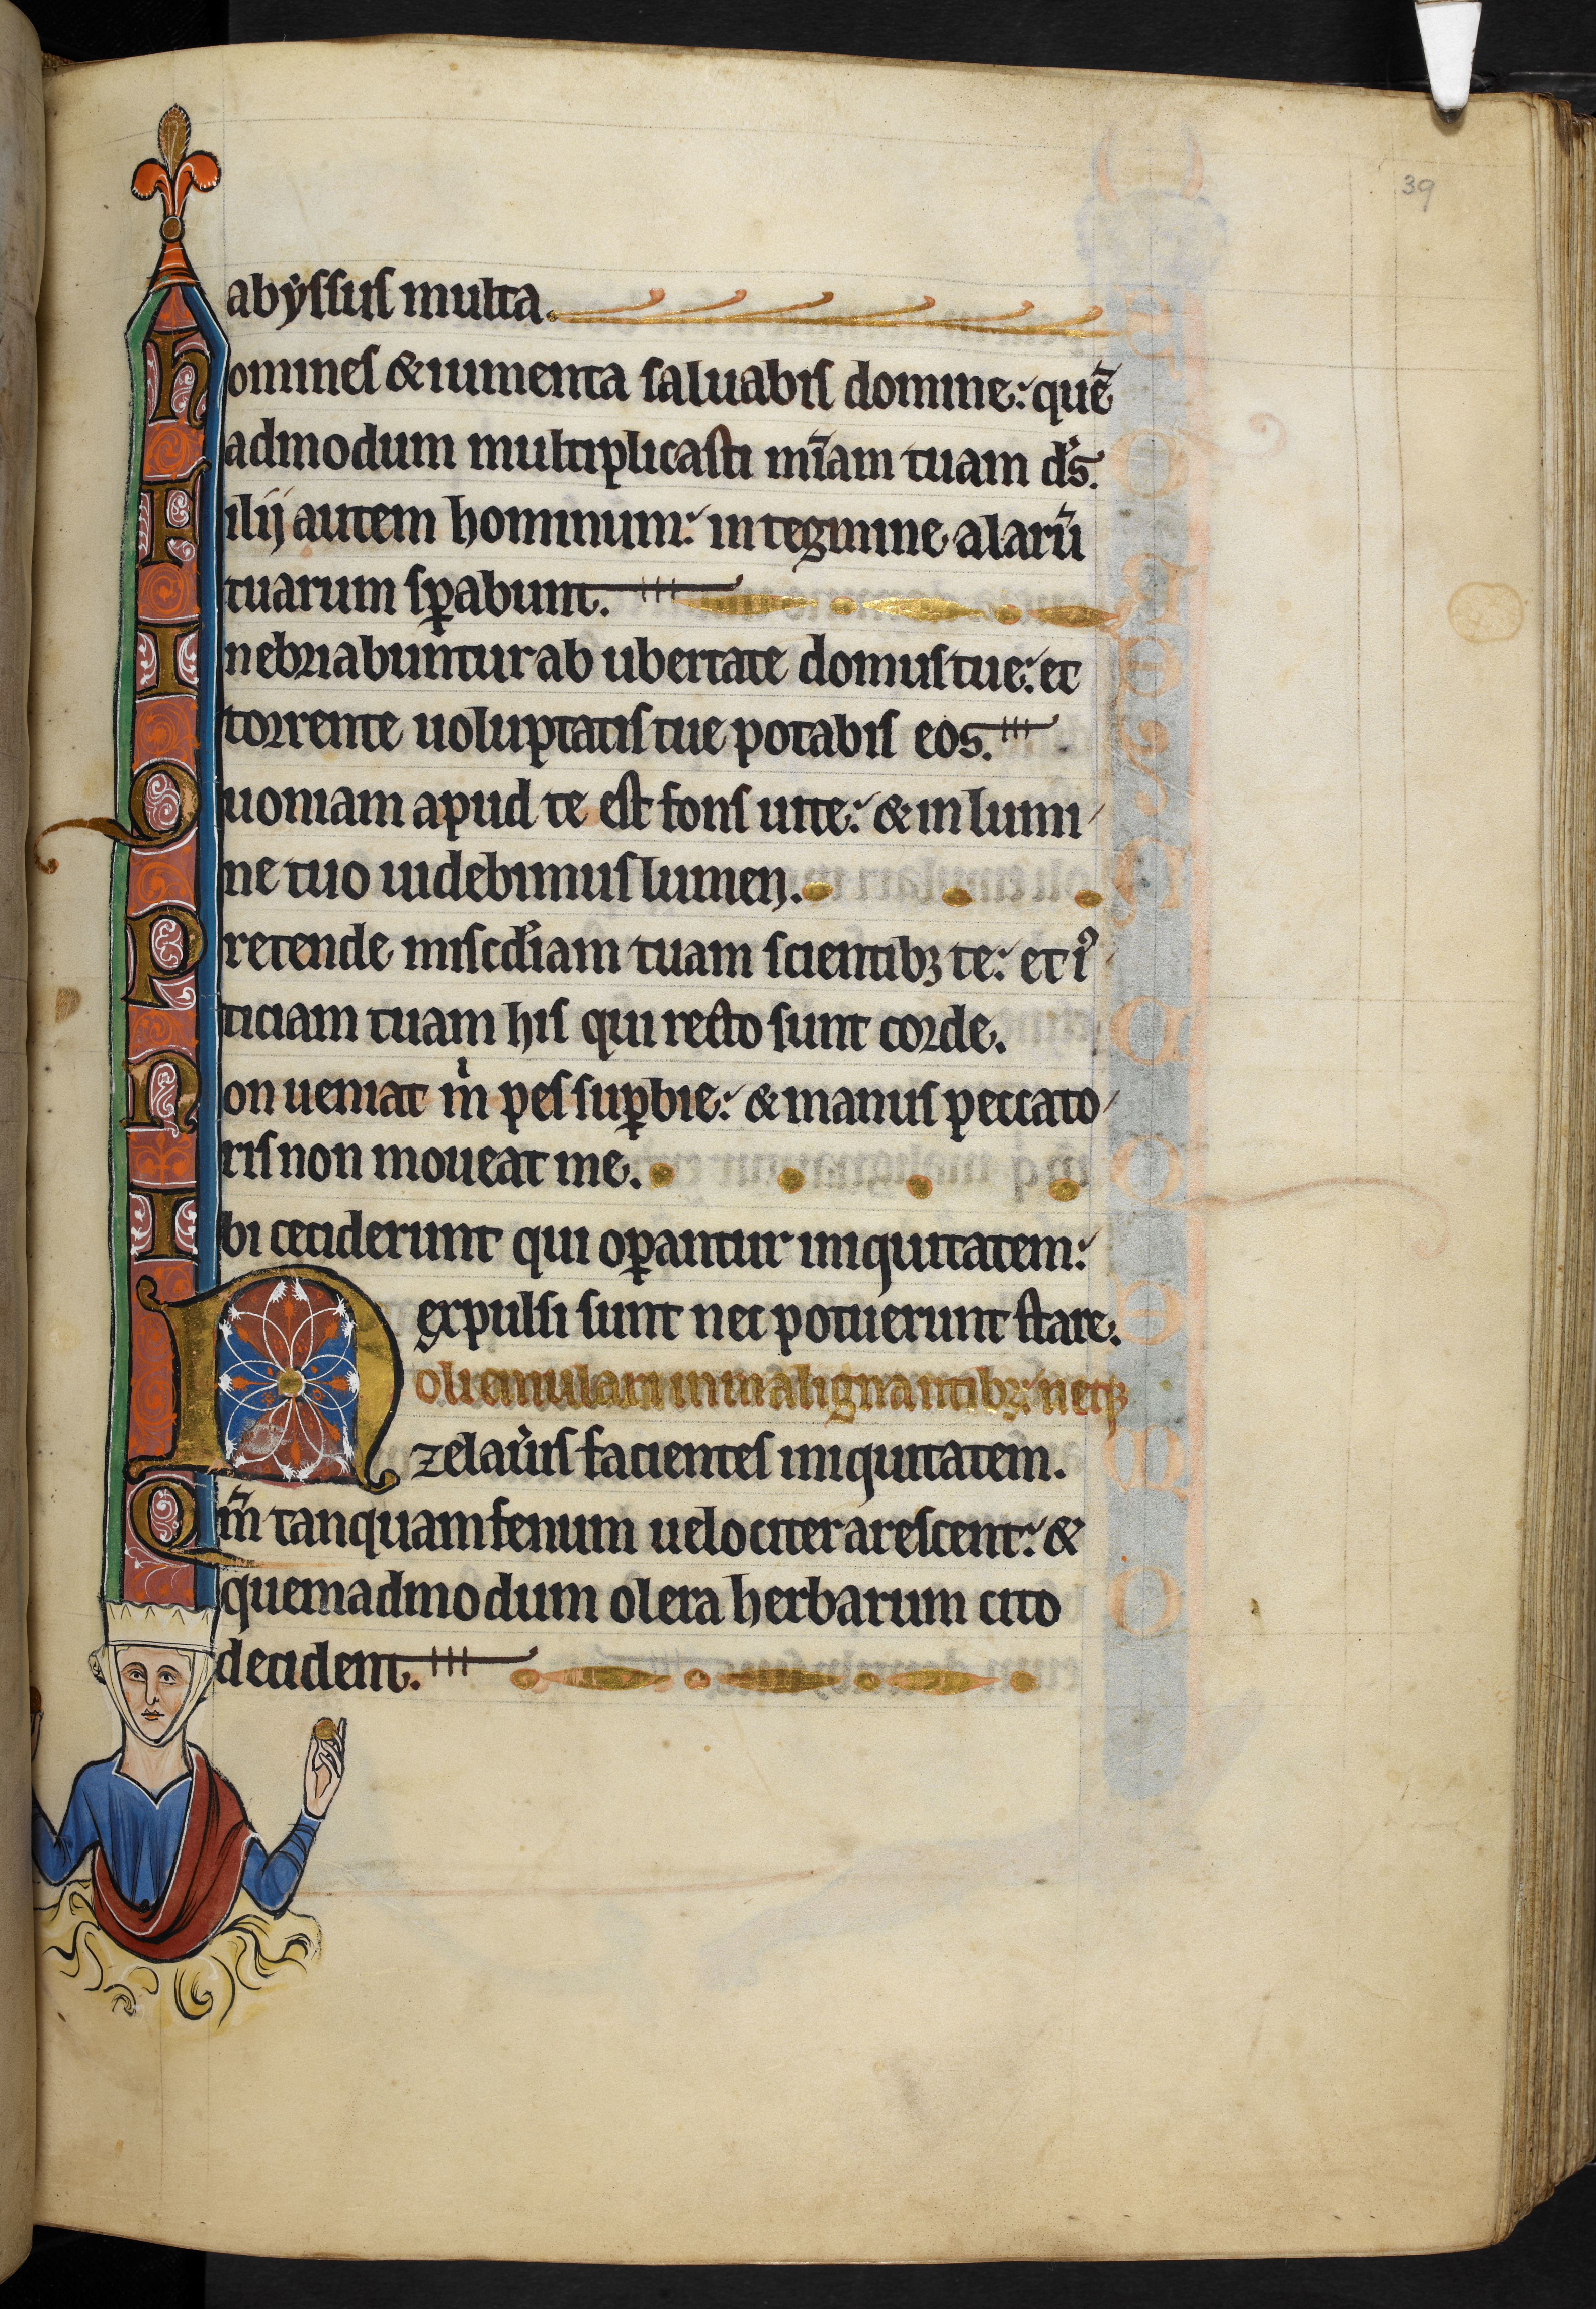 39
abyssus multa.
Homines & iumenta saluabis domine: quē
admodum multiplicasti mīam tuam ds̄.
Filij autem hominum: in tegmine alarū
tuarum sꝑabunt.
Inebriabuntur ab ubertate domus tue: et
torrente uoluptatis tue potabis eos.
Quoniam apud te est fons uite: & in lumi
ne tuo uidebimus lumen.
Pretende misc̄diam tuam scientibꝫ te: et iꝰ
ticiam tuam his qui recto sunt corde.
Non ueniat m̍ pes suꝑbie: & manus peccato
ris non moueat me.
Ibi ceciderunt qui oꝑantur iniquitatem:
expulsi sunt nec potuerunt stare.
Noli emulari in malignantibꝫ: neqꝫ
zelaũis facientes iniquitatem.
Qm̄ tanquam fenum uelociter arescent: &
quemadmodum olera herbarum cito
decident.